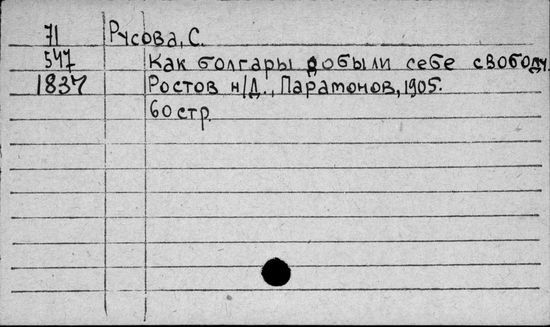 71 Русова, С.
547 Как болгары добыли себе свободу.
1837 Ростов н/Д., Парамонов, 1905.
60 стр.